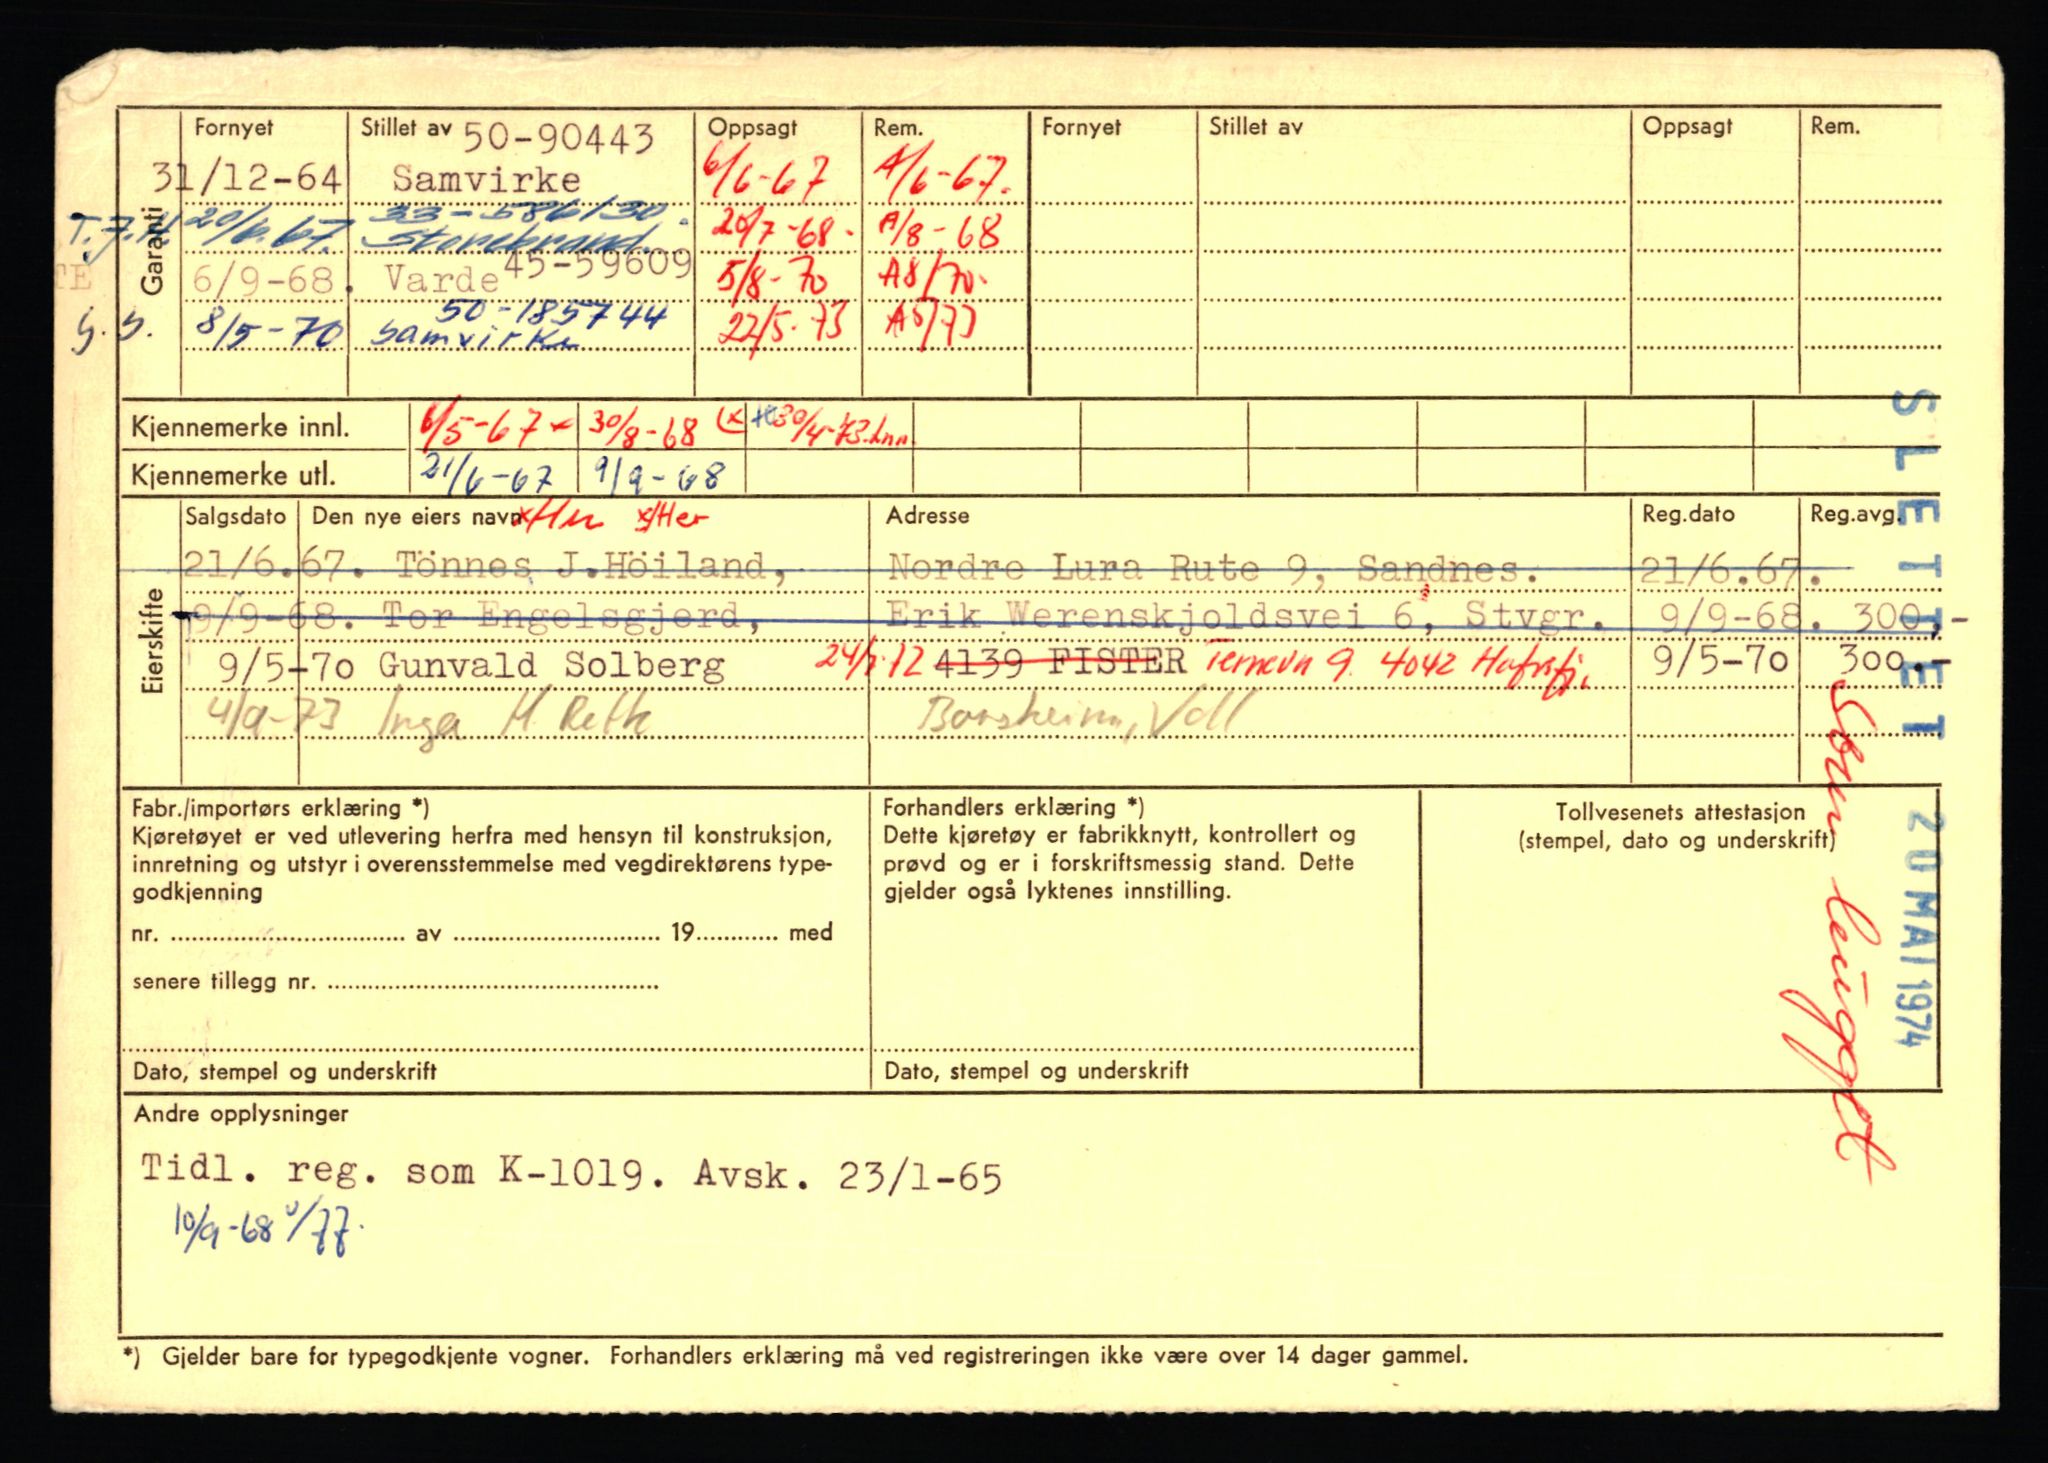 Garanti
Fornyet Stillet av Oppsagt Rem. Fornyet Stillet av Oppsagt Rem.
50-90443
31/12-64 Samvirke 6/6-67 A/6-67.
T.J.H. 20/6.67. 33-586130. Storebrand. 20/7-68. A/8-68
TE 6/9-68. Varde 45-59609 5/8-70 A8/70.
G.S. 8/5-70 50-185744 Samvirke 22/5-73 A5/73
Kjennemerke innl. 6/5-67 x 30/8-68 (x 30/4-73. Inn.
Kjennemerke utl. 21/6-67 9/9-68
Eierskifte
Salgsdato Den nye eiers navn x/Her x/Her Adresse Reg.dato Reg.avg.
21/6.67. Tönnes J.Höiland, Nordre Lura Rute 9, Sandnes. 21/6.67.
9/9-68. Tor Engelsgjerd, Erik Werenskjoldsvei 6, Stvgr. 9/9-68. 300,-
9/5-70 Gunvald Solberg 4139 FISTER Ternevn 9. 4042 Hafrsfj. 9/5-70 300.-
4/9-73 Inga M Reth Borsheim, Voll
SLETTET 20 MAI 1974
Fabr./importørs erklæring *)
Kjøretøyet er ved utlevering herfra med hensyn til konstruksjon,
innretning og utstyr i overensstemmelse med vegdirektørens type-
godkjenning
nr. .................... av .................... 19........... med
senere tillegg nr. ....................
Dato, stempel og underskrift
Forhandlers erklæring *)
Dette kjøretøy er fabrikknytt, kontrollert og
prøvd og er i forskriftsmessig stand. Dette
gjelder også lyktenes innstilling.
Dato, stempel og underskrift
Tollvesenets attestasjon
(stempel, dato og underskrift)
Andre opplysninger
Tidl. reg. som K-1019. Avsk. 23/1-65
10/9-68
*) Gjelder bare for typegodkjente vogner. Forhandlers erklæring må ved registreringen ikke være over 14 dager gammel.